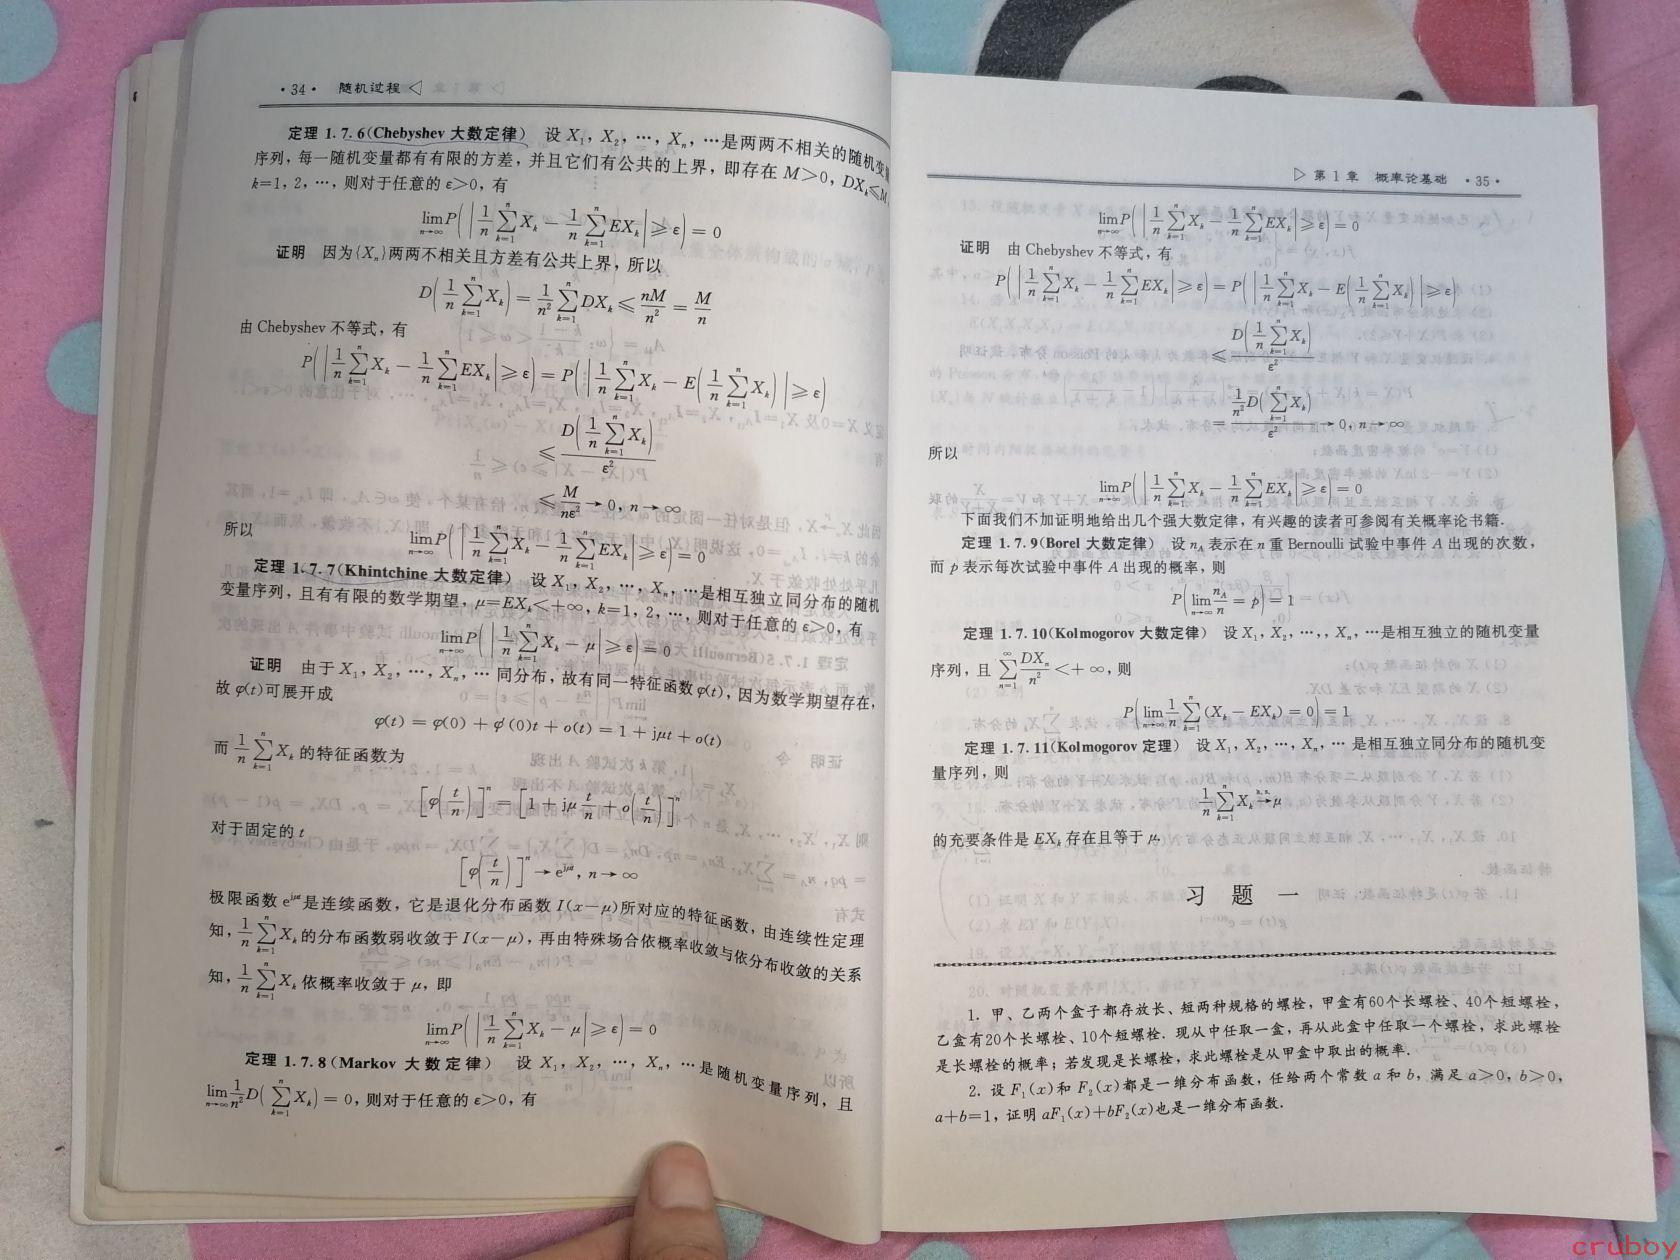 ·34· 随机过程 ◁
定理 1.7.6(Chebyshev 大数定律) 设 X₁, X₂, …, Xₙ, …是两两不相关的随机变
序列，每一随机变量都有有限的方差，并且它们有公共的上界，即存在 M>0, DXₖ≤M
k=1, 2, …, 则对于任意的 ε>0, 有
lim_{n→∞} P(|1/n ∑_{k=1}^{n} Xₖ − 1/n ∑_{k=1}^{n} EXₖ| ≥ ε) = 0
证明 因为{Xₙ}两两不相关且方差有公共上界，所以
D(1/n ∑_{k=1}^{n} Xₖ) = 1/n² ∑_{k=1}^{n} DXₖ ≤ nM/n² = M/n
由 Chebyshev 不等式，有
P(|1/n ∑_{k=1}^{n} Xₖ − 1/n ∑_{k=1}^{n} EXₖ| ≥ ε) = P(|1/n ∑_{k=1}^{n} Xₖ − E(1/n ∑_{k=1}^{n} Xₖ)| ≥ ε)
≤ D(1/n ∑_{k=1}^{n} Xₖ)/ε²
≤ M/nε² → 0, n→∞
所以
lim_{n→∞} P(|1/n ∑_{k=1}^{n} Xₖ − 1/n ∑_{k=1}^{n} EXₖ| ≥ ε) = 0
定理 1.7.7(Khintchine 大数定律) 设 X₁, X₂, …, Xₙ, …是相互独立同分布的随机
变量序列，且有有限的数学期望，μ=EXₖ<+∞, k=1, 2, …, 则对于任意的 ε>0, 有
lim_{n→∞} P(|1/n ∑_{k=1}^{n} Xₖ − μ| ≥ ε) = 0
证明 由于 X₁, X₂, …, Xₙ, … 同分布，故有同一特征函数 φ(t)，因为数学期望存在，
故 φ(t)可展开成
φ(t) = φ(0) + φ′(0)t + o(t) = 1 + jμt + o(t)
而 1/n ∑_{k=1}^{n} Xₖ 的特征函数为
[φ(t/n)]ⁿ = [1 + jμ t/n + o(t/n)]ⁿ
对于固定的 t
[φ(t/n)]ⁿ → e^{jμt}, n→∞
极限函数 e^{jμt} 是连续函数，它是退化分布函数 I(x−μ)所对应的特征函数，由连续性定理
知，1/n ∑_{k=1}^{n} Xₖ 的分布函数弱收敛于 I(x−μ)，再由特殊场合依概率收敛与依分布收敛的关系
知，1/n ∑_{k=1}^{n} Xₖ 依概率收敛于 μ，即
lim_{n→∞} P(|1/n ∑_{k=1}^{n} Xₖ − μ| ≥ ε) = 0
定理 1.7.8(Markov 大数定律) 设 X₁, X₂, …, Xₙ, …是随机变量序列，且
lim_{n→∞} 1/n² D(∑_{k=1}^{n} Xₖ) = 0, 则对于任意的 ε>0, 有
▷ 第 1 章 概率论基础 ·35·
lim_{n→∞} P(|1/n ∑_{k=1}^{n} Xₖ − 1/n ∑_{k=1}^{n} EXₖ| ≥ ε) = 0
证明 由 Chebyshev 不等式，有
P(|1/n ∑_{k=1}^{n} Xₖ − 1/n ∑_{k=1}^{n} EXₖ| ≥ ε) = P(|1/n ∑_{k=1}^{n} Xₖ − E(1/n ∑_{k=1}^{n} Xₖ)| ≥ ε)
≤ D(1/n ∑_{k=1}^{n} Xₖ)/ε²
= 1/n² D(∑_{k=1}^{n} Xₖ)/ε² → 0, n→∞
所以
lim_{n→∞} P(|1/n ∑_{k=1}^{n} Xₖ − 1/n ∑_{k=1}^{n} EXₖ| ≥ ε) = 0
下面我们不加证明地给出几个强大数定律，有兴趣的读者可参阅有关概率论书籍.
定理 1.7.9(Borel 大数定律) 设 n_A 表示在 n 重 Bernoulli 试验中事件 A 出现的次数，
而 p 表示每次试验中事件 A 出现的概率，则
P(lim_{n→∞} n_A/n = p) = 1
定理 1.7.10(Kolmogorov 大数定律) 设 X₁, X₂, …,, Xₙ, …是相互独立的随机变量
序列，且 ∑_{n=1}^{∞} DXₙ/n² < +∞, 则
P(lim_{n→∞} 1/n ∑_{k=1}^{n} (Xₖ − EXₖ) = 0) = 1
定理 1.7.11(Kolmogorov 定理) 设 X₁, X₂, …, Xₙ, … 是相互独立同分布的随机变
量序列，则
1/n ∑_{k=1}^{n} Xₖ →^{a.s.} μ
的充要条件是 EXₖ 存在且等于 μ.
习 题 一
1. 甲、乙两个盒子都存放长、短两种规格的螺栓，甲盒有60个长螺栓、40个短螺栓，
乙盒有20个长螺栓、10个短螺栓. 现从中任取一盒，再从此盒中任取一个螺栓，求此螺栓
是长螺栓的概率；若发现是长螺栓，求此螺栓是从甲盒中取出的概率.
2. 设 F₁(x)和 F₂(x)都是一维分布函数，任给两个常数 a 和 b，满足 a≥0, b≥0,
a+b=1, 证明 aF₁(x)+bF₂(x)也是一维分布函数.
cruboy